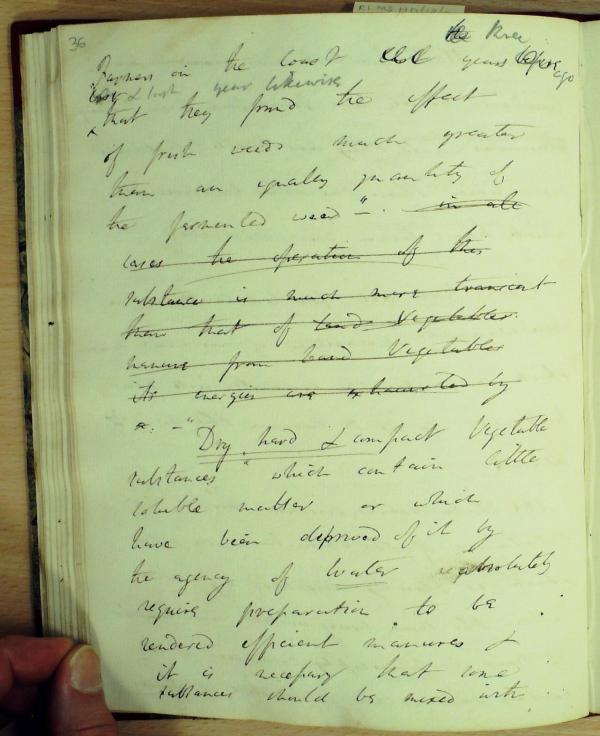 36
the three
Farmers on the Coast years before ago
& last year likewise
that they found the effect
of fresh weeds much greater
than an equally quantity of
the fermented weed"–. in all
cases the operation of this
substance is much more transient
than that of land Vegetables
manure from land Vegetables
its energies are exhausted by
– "Dry hard & compact Vegetable
substances" which contain little
soluble matter or which
have been deprived of it by
the agency of Water absolutely
require preparation to be
rendered efficient manures &
it is necessary that some
substances should be mixed with